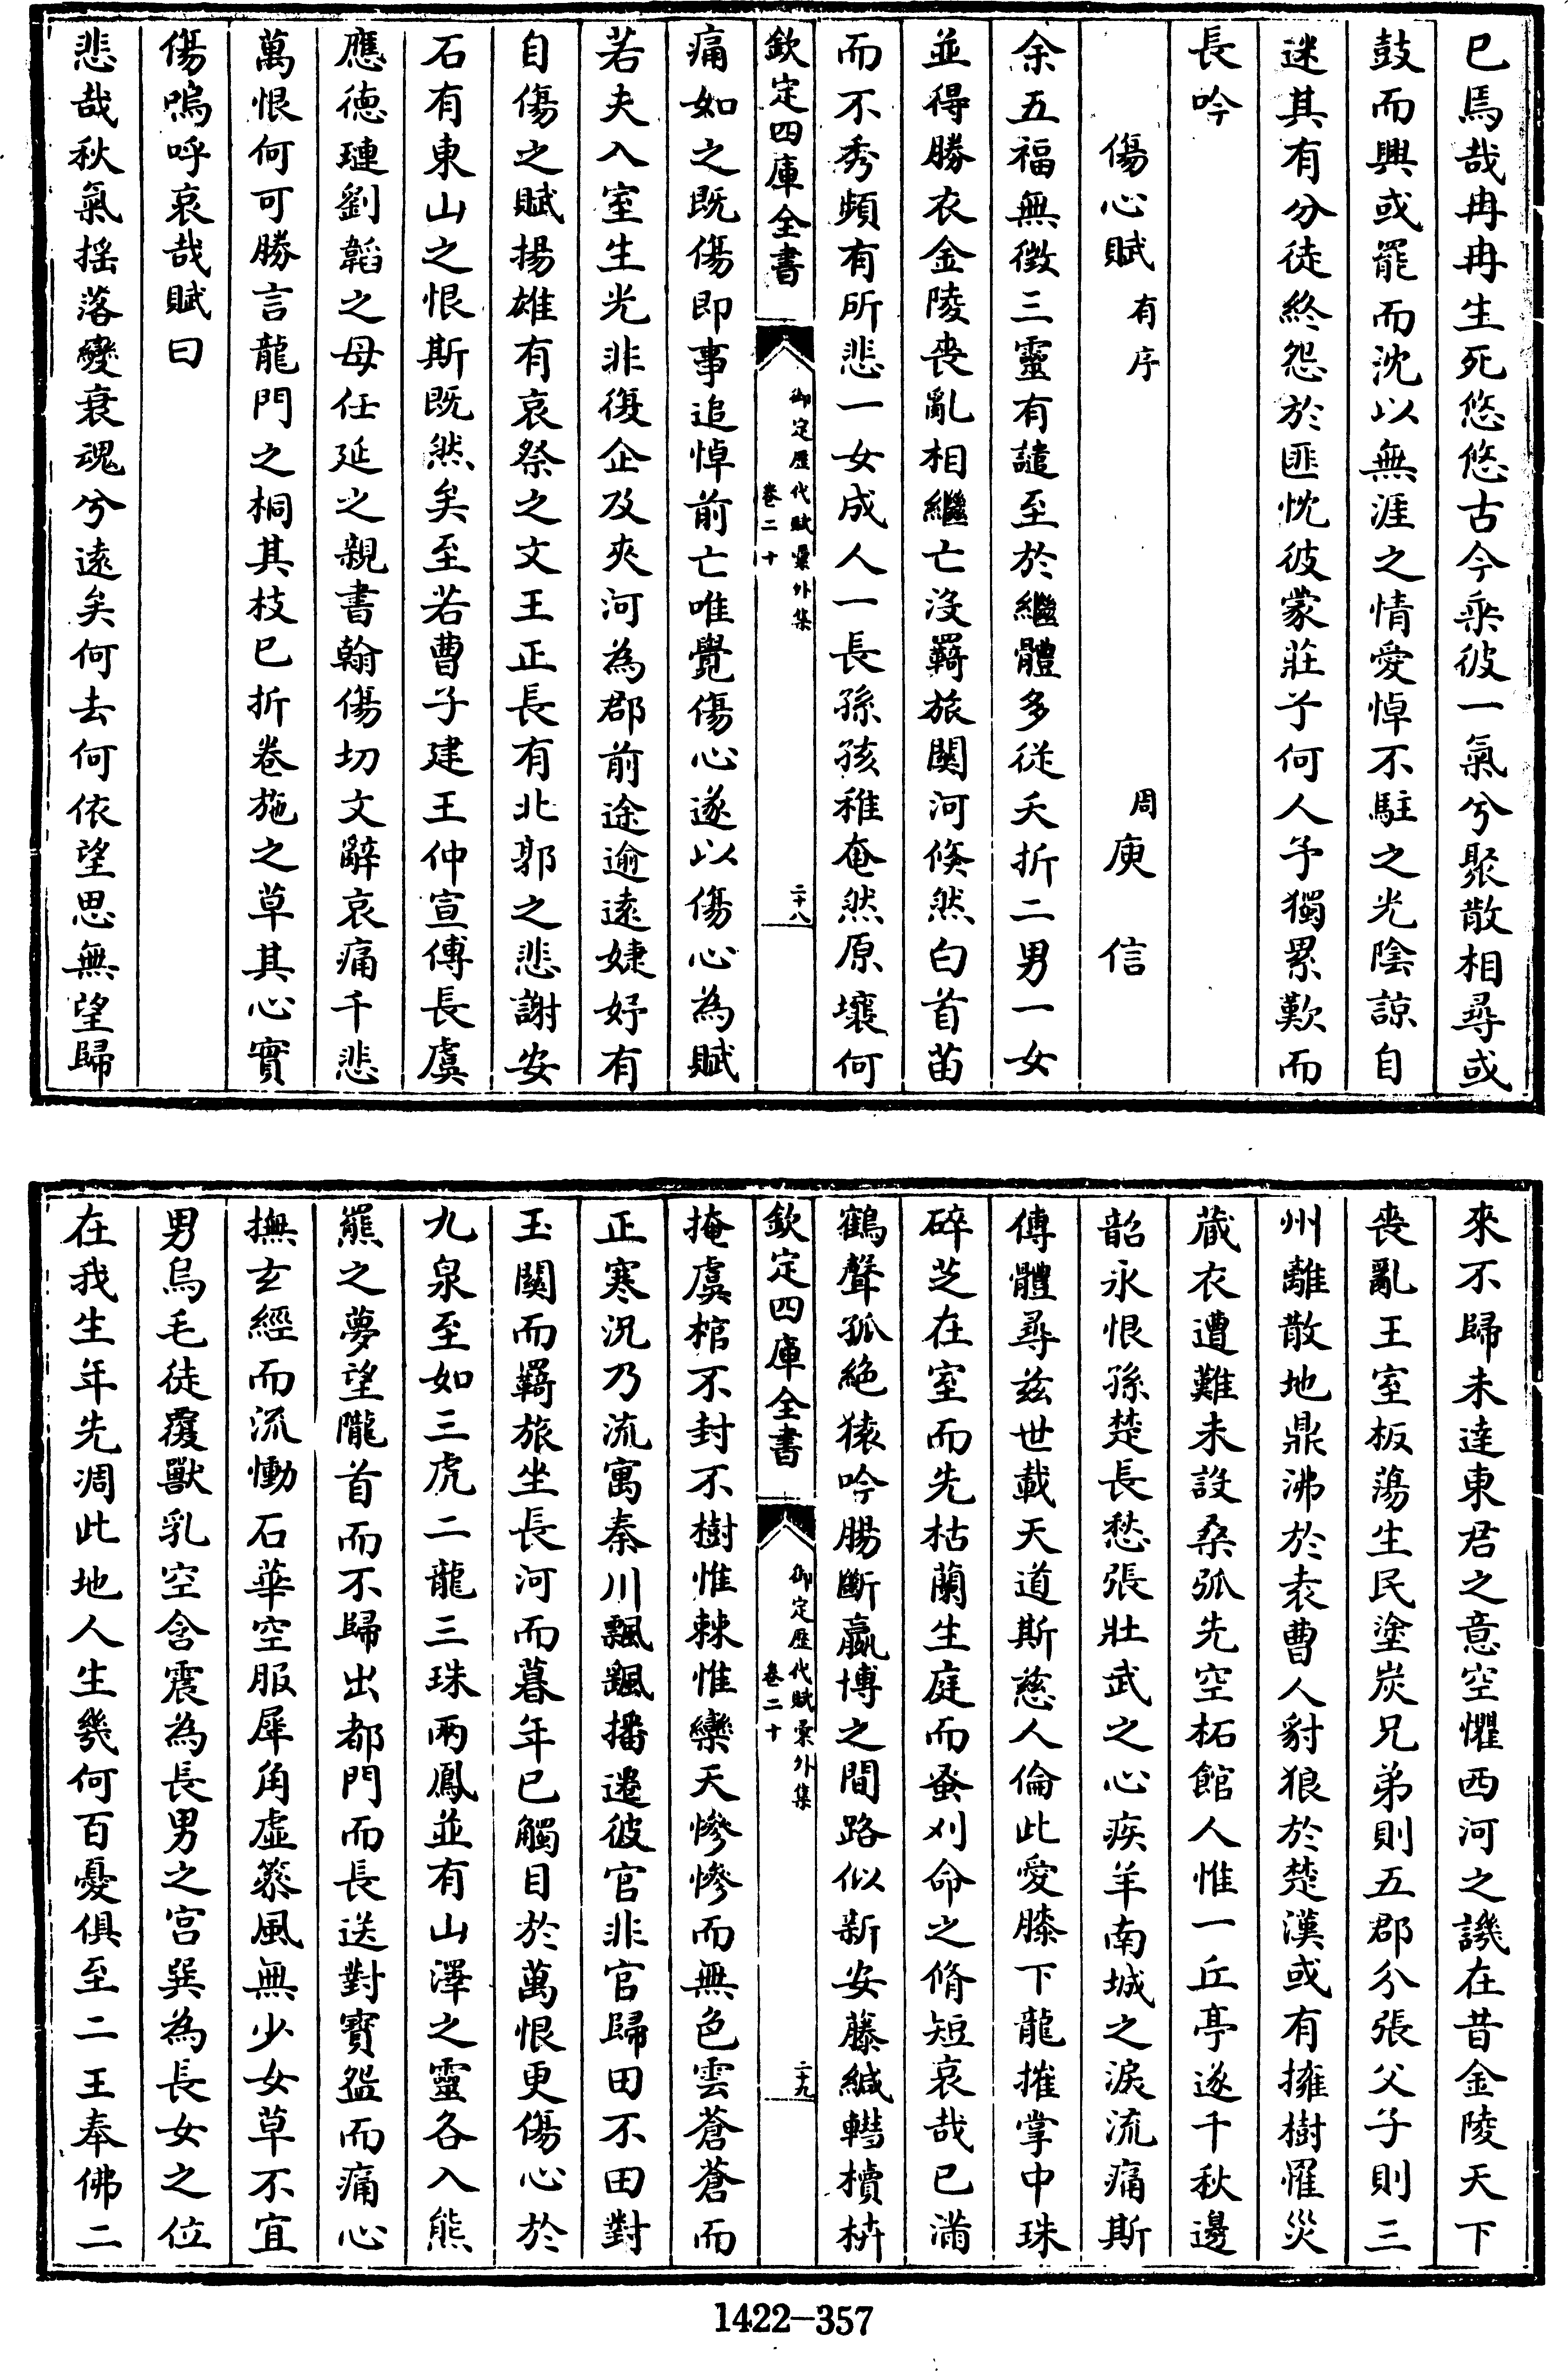 已焉哉冉冉生死悠悠古今乘彼一氣兮聚散相尋或
鼓而興或罷而沈以無涯之情愛悼不駐之光陰諒自
迷其有分徒終怨於匪忱彼蒙莊子何人予獨累歎而
長吟
傷心賦有序 周庾信
余五福無徵三靈有譴至於繼體多從夭折二男一女
並得勝衣金陵喪亂相繼亡沒羇旅關河倐然白首苗
而不秀頻有所悲一女成人一長孫孩稚奄然原壤何
欽定四庫全書 御定歷代賦彙外集 卷二十 二十八
痛如之既傷即事追悼前亡唯覺傷心遂以傷心為賦
若夫入室生光非復企及夾河為郡前途逾遠婕妤有
自傷之賦揚雄有哀祭之文王正長有北郭之悲謝安
石有東山之恨斯既然矣至若曹子建王仲宣傅長虞
應德璉劉韜之母任延之親書翰傷切文辭哀痛千悲
萬恨何可勝言龍門之桐其枝已折卷施之草其心實
傷嗚呼哀哉賦曰
悲哉秋氣揺落變衰魂兮遠矣何去何依望思無望歸
來不歸未達東君之意空懼西河之譏在昔金陵天下
喪亂王室板蕩生民塗炭兄弟則五郡分張父子則三
州離散地鼎沸於袁曹人豺狼於楚漢或有擁樹罹災
藏衣遭難未設桑弧先空柘館人惟一丘亭遂千秋邊
韶永恨孫楚長愁張壯武之心疾羊南城之淚流痛斯
傅體尋茲世載天道斯慈人倫此愛膝下龍摧掌中珠
碎芝在室而先枯蘭生庭而蚤刈命之脩短哀哉已滿
鶴聲孤絶猿吟腸斷嬴博之間路似新安藤緘轊櫝枿
欽定四庫全書 御定歷代賦彙外集 卷二十 二十九
掩虞棺不封不樹惟棘惟欒天慘慘而無色雲蒼蒼而
正寒況乃流寓秦川飄颻播遷彼官非官歸田不田對
玉關而羇旅坐長河而暮年已觸目於萬恨更傷心於
九泉至如三虎二龍三珠兩鳳並有山澤之靈各入熊
羆之夢望隴首而不歸出都門而長送對寶盌而痛心
撫玄經而流慟石華空服犀角虛篸風無少女草不宜
男烏毛徒覆獸乳空含震為長男之宮巽為長女之位
在我生年先凋此地人生幾何百憂俱至二王奉佛二
1422—357